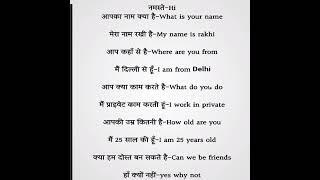 नमस्ते-Hi
आपका नाम क्या है-What is your name
मेरा नाम रखी है-My name is rakhi
आप कहाँ से है-Where are you from
मैं दिल्ली से हूँ-I am from Delhi
आप क्या काम करते है-What do you do
मैं प्राइवेट काम करती हूँ-I work in private
आपकी उम्र कितनी है-How old are you
मैं 25 साल की हूँ-I am 25 years old
क्या हम दोस्त बन सकते है-Can we be friends
हाँ क्यों नहीं-yes why not